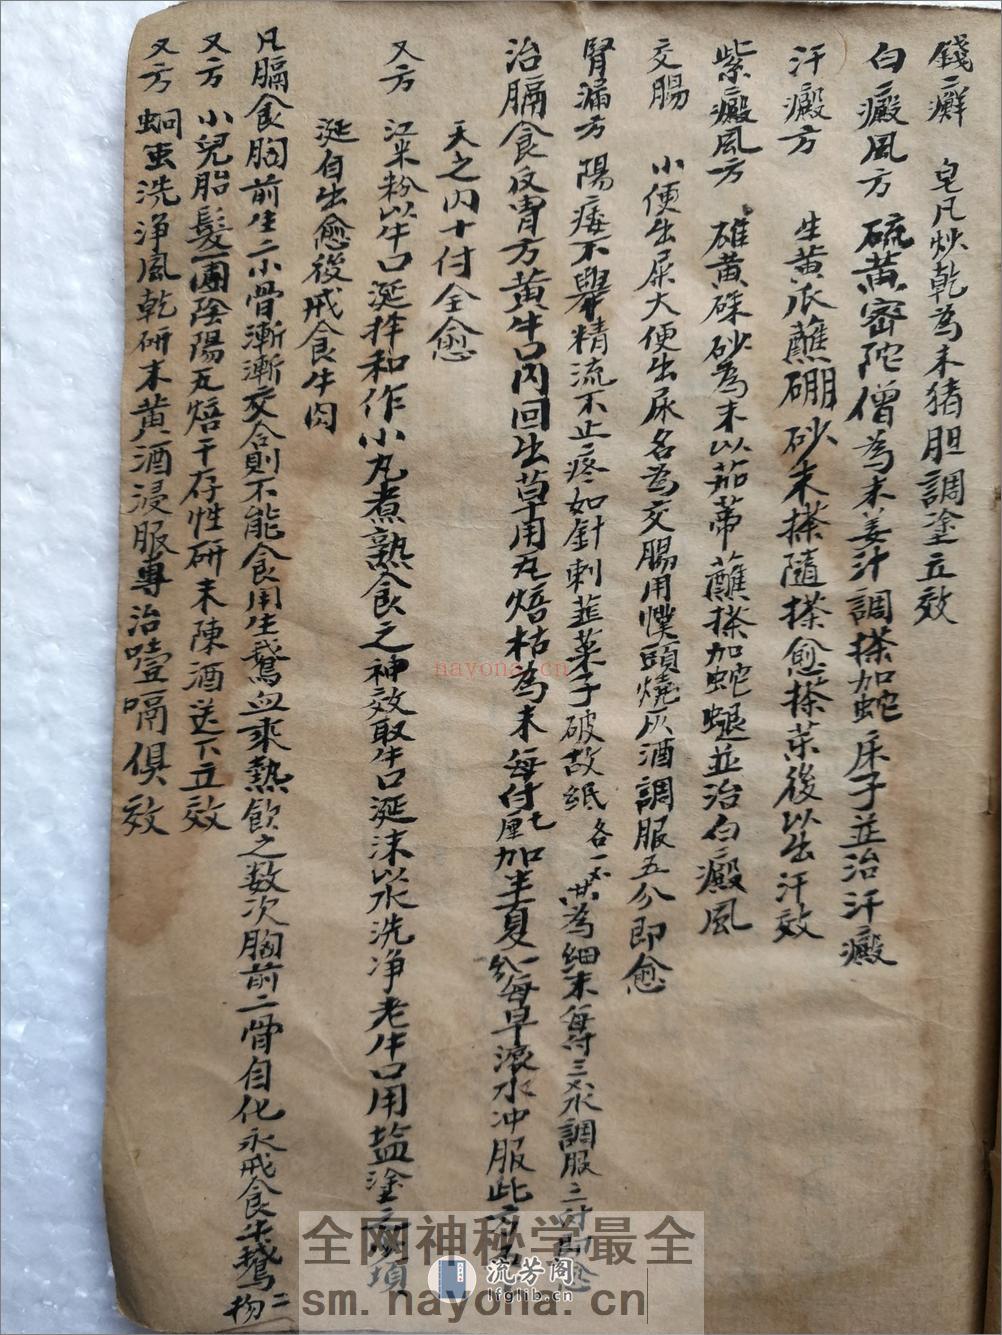 錢癬 皂凡炒乾為末猪胆調塗立效
白癜風方 硫黄密陀僧為末姜汁調搽加蛇床子並治汗癜
汗癜方 生黄瓜蘸硼砂末搽隨搽愈搽菜後以出汗效
紫癜風方 雄黄硃砂為末以茄蒂蘸搽加蛇蜕並治白癜風
交腸 小便出屎大便出尿名為交腸用幞頭燒灰酒調服五分即愈
腎漏方 陽痿不舉精流不止疼如針刺韮菜子破故纸各一 為細末每付三 水調服三付即愈
治膈食反胃方黄牛口内回出草用瓦焙枯為末每付七厘加半夏 每早滚水冲服此方
天之内十付全愈
又方 江米粉以牛口涎拌和作小丸煮熟食之神效取牛口涎沫以水洗净老牛口用盐塗之 項
涎自出愈後戒食牛肉
凡膈食胸前生二小骨漸漸交合則不能食用生鵞血乘熱飲之数次胸前二骨自化永戒食牛鵞二物
又方 小兒胎髮一團陰陽瓦焙干存性研末陳酒送下立效
又方 蛔虫洗淨風乾研末黄酒浸服專治噎嗝俱效
nayona.cn
全网神秘学最全
sm.nayona.cn
流芳阁
lfglib.com